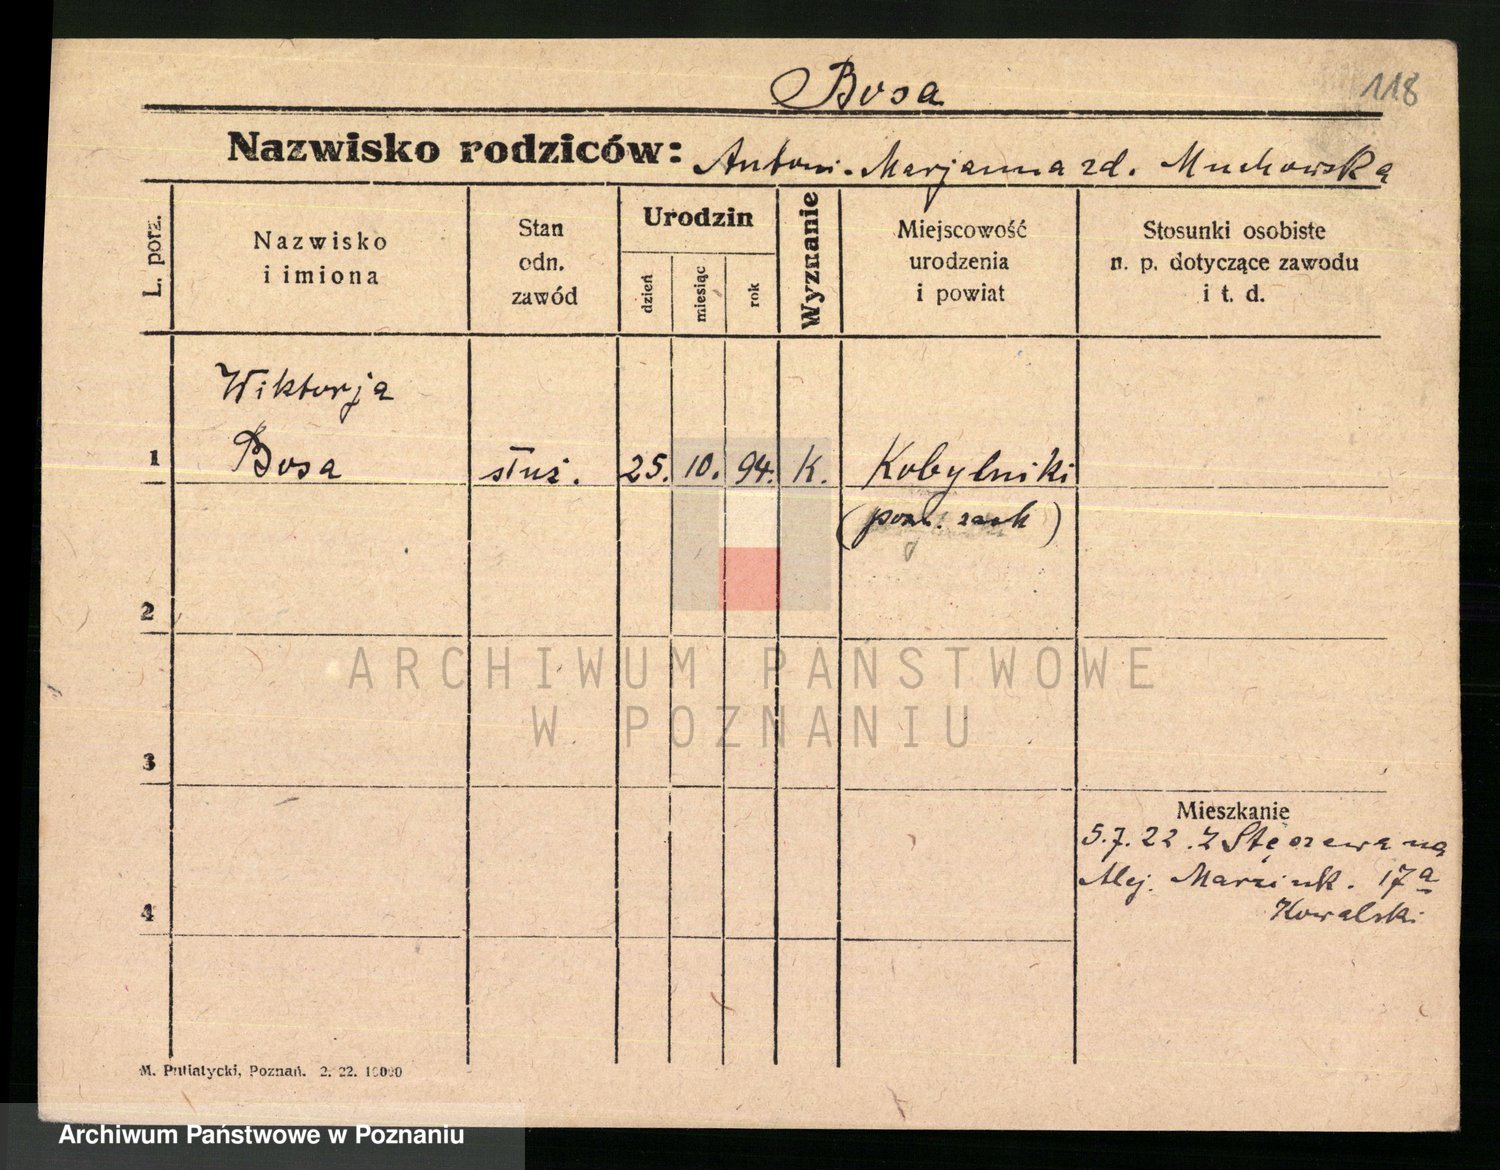 Bosa
118
Nazwisko rodziców: Antoni. Marjanna zd. Muchowska
L. porz.
Nazwisko
i imiona
Stan
odn.
zawód
Urodzin
dzień
miesiąc
rok
Wyznanie
Miejscowość
urodzenia
i powiat
Stosunki osobiste
n. p. dotyczące zawodu
i t. d.
Wiktorja
1 Bosa służ. 25. 10. 94. K. Kobylniki
(pozn. zach)
2
ARCHIWUM PAŃSTWOWE
W POZNANIU
3
Mieszkanie
5.7.22. Z Stęszewa na
Alej. Marcink. 17a
4 Kowalski
M. Putiatycki, Poznań. 2. 22. 10000
Archiwum Państwowe w Poznaniu